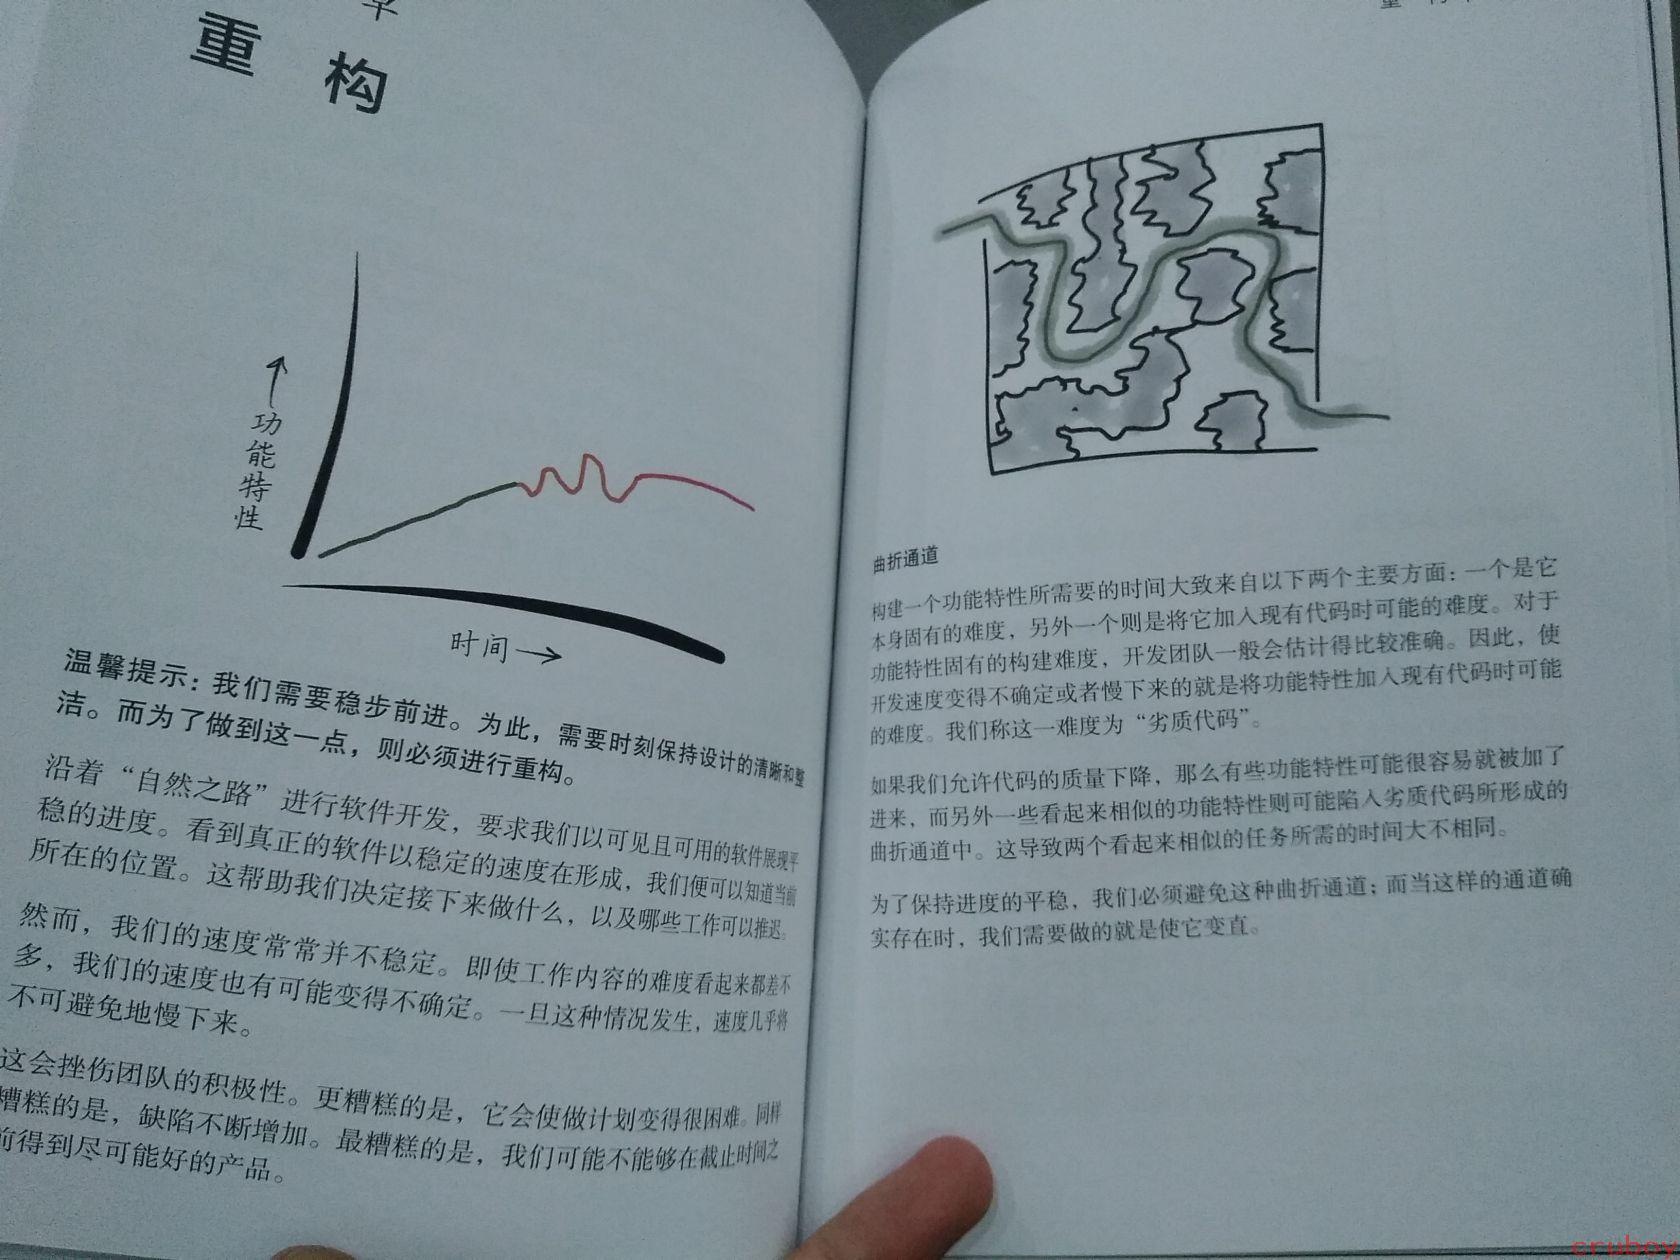 重 构
功能特性
时间
温馨提示：我们需要稳步前进。为此，需要时刻保持设计的清晰和整
洁。而为了做到这一点，则必须进行重构。
沿着“自然之路”进行软件开发，要求我们以可见且可用的软件展现平
稳的进度。看到真正的软件以稳定的速度在形成，我们便可以知道当前
所在的位置。这帮助我们决定接下来做什么，以及哪些工作可以推迟。
然而，我们的速度常常并不稳定。即使工作内容的难度看起来都差不
多，我们的速度也有可能变得不确定。一旦这种情况发生，速度几乎将
不可避免地慢下来。
这会挫伤团队的积极性。更糟糕的是，它会使做计划变得很困难。同样
糟糕的是，缺陷不断增加。最糟糕的是，我们可能不能够在截止时间之
前得到尽可能好的产品。
曲折通道
构建一个功能特性所需要的时间大致来自以下两个主要方面：一个是它
本身固有的难度，另外一个则是将它加入现有代码时可能的难度。对于
功能特性固有的构建难度，开发团队一般会估计得比较准确。因此，使
开发速度变得不确定或者慢下来的就是将功能特性加入现有代码时可能
的难度。我们称这一难度为“劣质代码”。
如果我们允许代码的质量下降，那么有些功能特性可能很容易就被加了
进来，而另外一些看起来相似的功能特性则可能陷入劣质代码所形成的
曲折通道中。这导致两个看起来相似的任务所需的时间大不相同。
为了保持进度的平稳，我们必须避免这种曲折通道；而当这样的通道确
实存在时，我们需要做的就是使它变直。